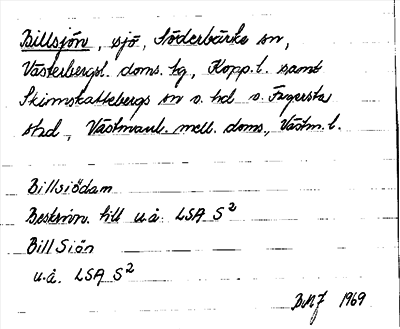 Billsjön, sjö, Söderbärke sn,
Västerbergsl. doms. tg, Kopp. l. samt
Skinnskattebergs sn o. hd o. Fagersta
stad, Västmanl. mell. doms., Västm. l.
Billsiödam
Beskrivn. till u.å. LSA S²
Bill Siön
u.å. LSA S²
1969